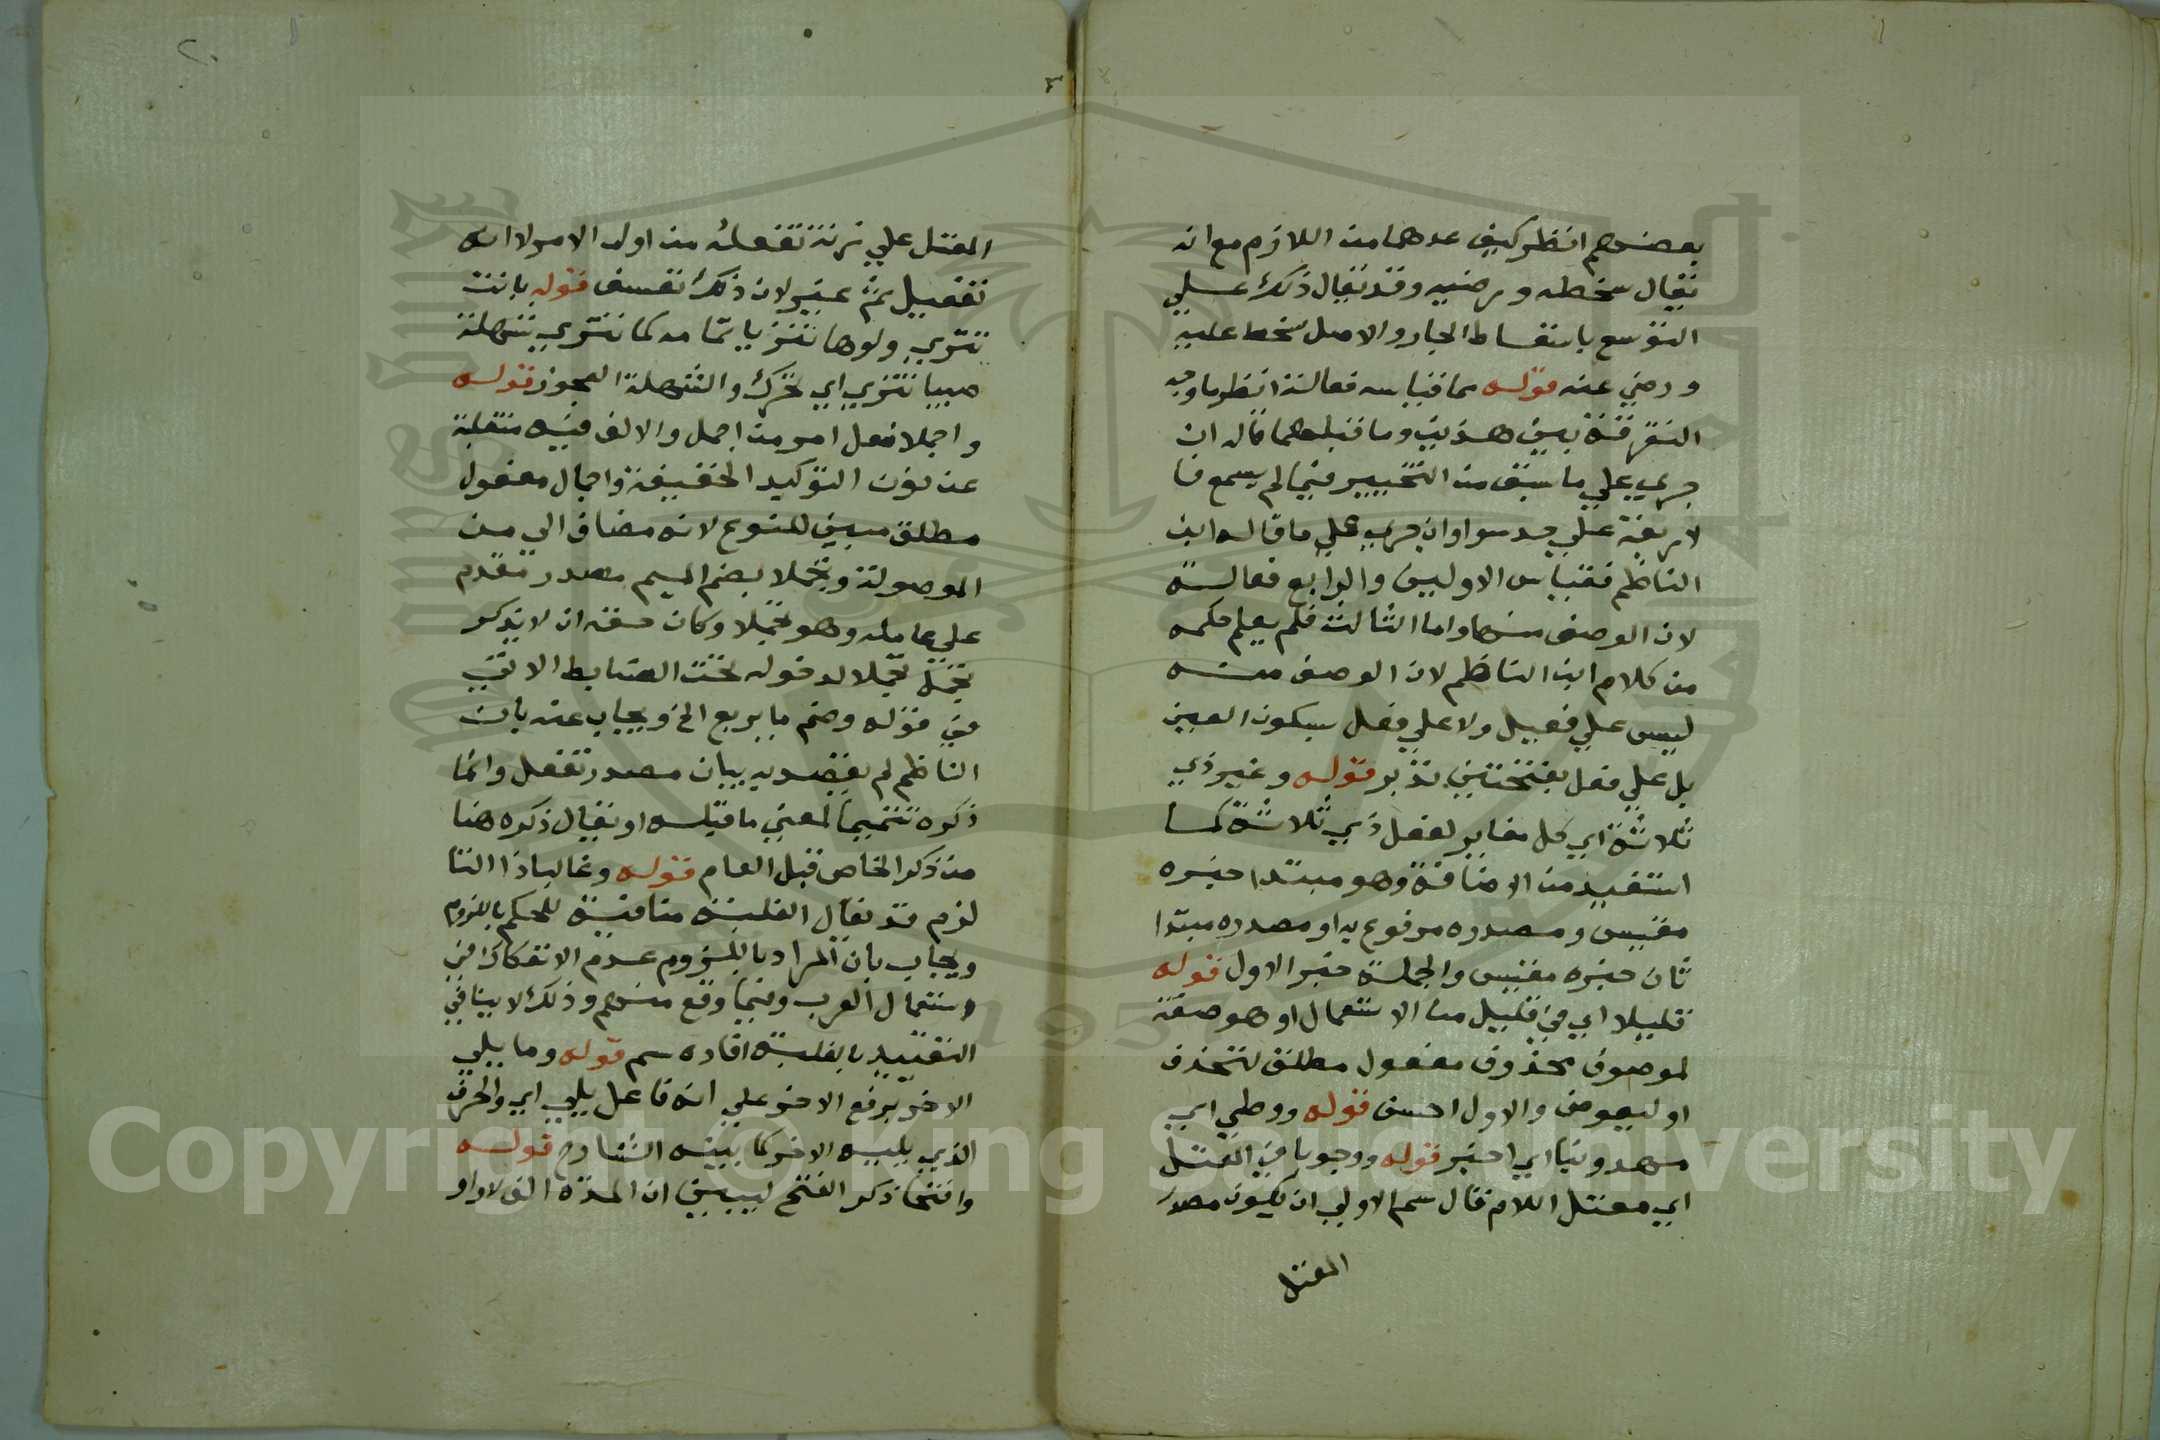 بعضهم انظر كيف عدهما من اللازم مع انه
يقال سخطه ورضيه وقد يقال ذلك علي
التوسع باسقاط الجار والاصل سخط عليه
ورضي عنه قوله مما قياسه فعالة انظر ما وجه
التفرقة بين هذين وما قبلهما فانه ان
جري علي ما سبق من التخيير فيما لم يسمع فا
لاربعة علي حد سوا وان جري علي ما قاله ابن
الناظم فقياس الاوليين والرابع فعالة
لان الوصف منها واما الثالث فلم يعلم حكمه
من كلام ابن الناظم لان الوصف منه
ليس علي فعيل ولا علي فعل بسكون العين
بل علي فعل بفتحتين تدبر قوله وغير ذي
ثلاثة اي كل مغاير لفعل ذي ثلاثة كما
استفيد من الاضافة وهو مبتدا خبره
مقيس ومصدره مرفوع به او مصدره مبتدا
ثان خبره مقيس والجملة خبر الاول قوله
قليلا اي في قليل من الاستعمال او هو صفة
لموصوف محذوف مفعول مطلق لتحذف
او ليعوض والاول احسن قوله ووطي اي
مهد ونيا اي اخبر قوله ووجوبا في المعتل
اي معتل اللام قال سم الاولي ان يكون مصدر
المعتل
٣
٢٠
المعتل علي زنة تفعلة من اول الامر لا انه
تفعيل ثم غير لان ذلك تعسف قوله باتت
تنزي ولوها تنزيا تمامه كما تنزي شهلة
صبيا تنزي اي تحرك والشهلة العجوز قوله
واجملا فعل امر من اجمل والالف فيه منقلبة
عن نون التوكيد الخفيفة واجمال مفعول
مطلق مبين للنوع لانه مضاف الي من
الموصولة وتجملا بضم الميم مصدر مقدم
علي عامله وهو تجملا وكان حقه ان لا يذكر
تجمل تجملا لدخوله تحت الضابط الاتي
في قوله وضم ما يربع الخ ويجاب عنه بان
الناظم لم يقصد به بيان مصدر تفعل وانما
ذكره تتميما لمعني ما قبله او يقال ذكره هنا
من ذكر الخاص قبل العام قوله وغالبا ذا التا
لزم قد يقال الغلبة منافية للحكم باللزوم
ويجاب بان المراد باللزوم عدم الانفكاك في
استعمال العرب وفيما وقع منهم وذلك لا ينافي
التقييد بالغلبة افاده سم قوله وما يلي
الاخر برفع الاخر علي انه فاعل يلي اي والحرف
الذي يليه الاخر كما بينه الشارح قوله
وافتحا ذكر الفتح ليبين ان المدة الف لا واو
Copyright © King Saud University
1957